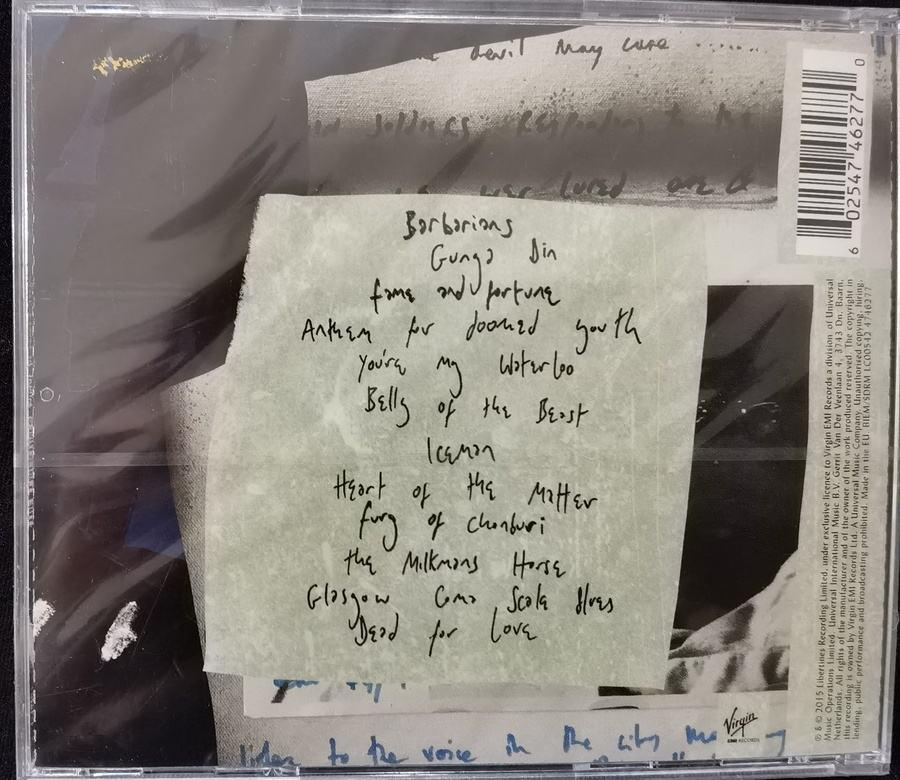 devil may care ......
soldiers Responding to the
were lured
Barbarians
Gunga Din
fame and fortune
Anthem for doomed youth
You're my Waterloo
Belly of the Beast
Iceman
Heart of the Matter
fury of Chonburi
the Milkmans Horse
Glasgow Coma Scale Blues
Dead for Love
listen to the voice in the city
Virgin
EMI RECORDS
6 02547 46277 0
℗ © 2015 Libertines Recording Limited, under exclusive licence to Virgin EMI Records a division of Universal
Music Operations Limited. Universal International Music B.V. Gerrit Van Der Veenlaan 4, 3743 Dn. Baarn,
Netherlands. All rights of the manufacturer and of the owner of the work produced reserved. The copyright in
this recording is owned by Virgin EMI Records Ltd. A Universal Music Company. Unauthorised copying, hiring,
lending, public performance and broadcasting prohibited. Made in the EU. BIEM/SDRM LC00542 4746277